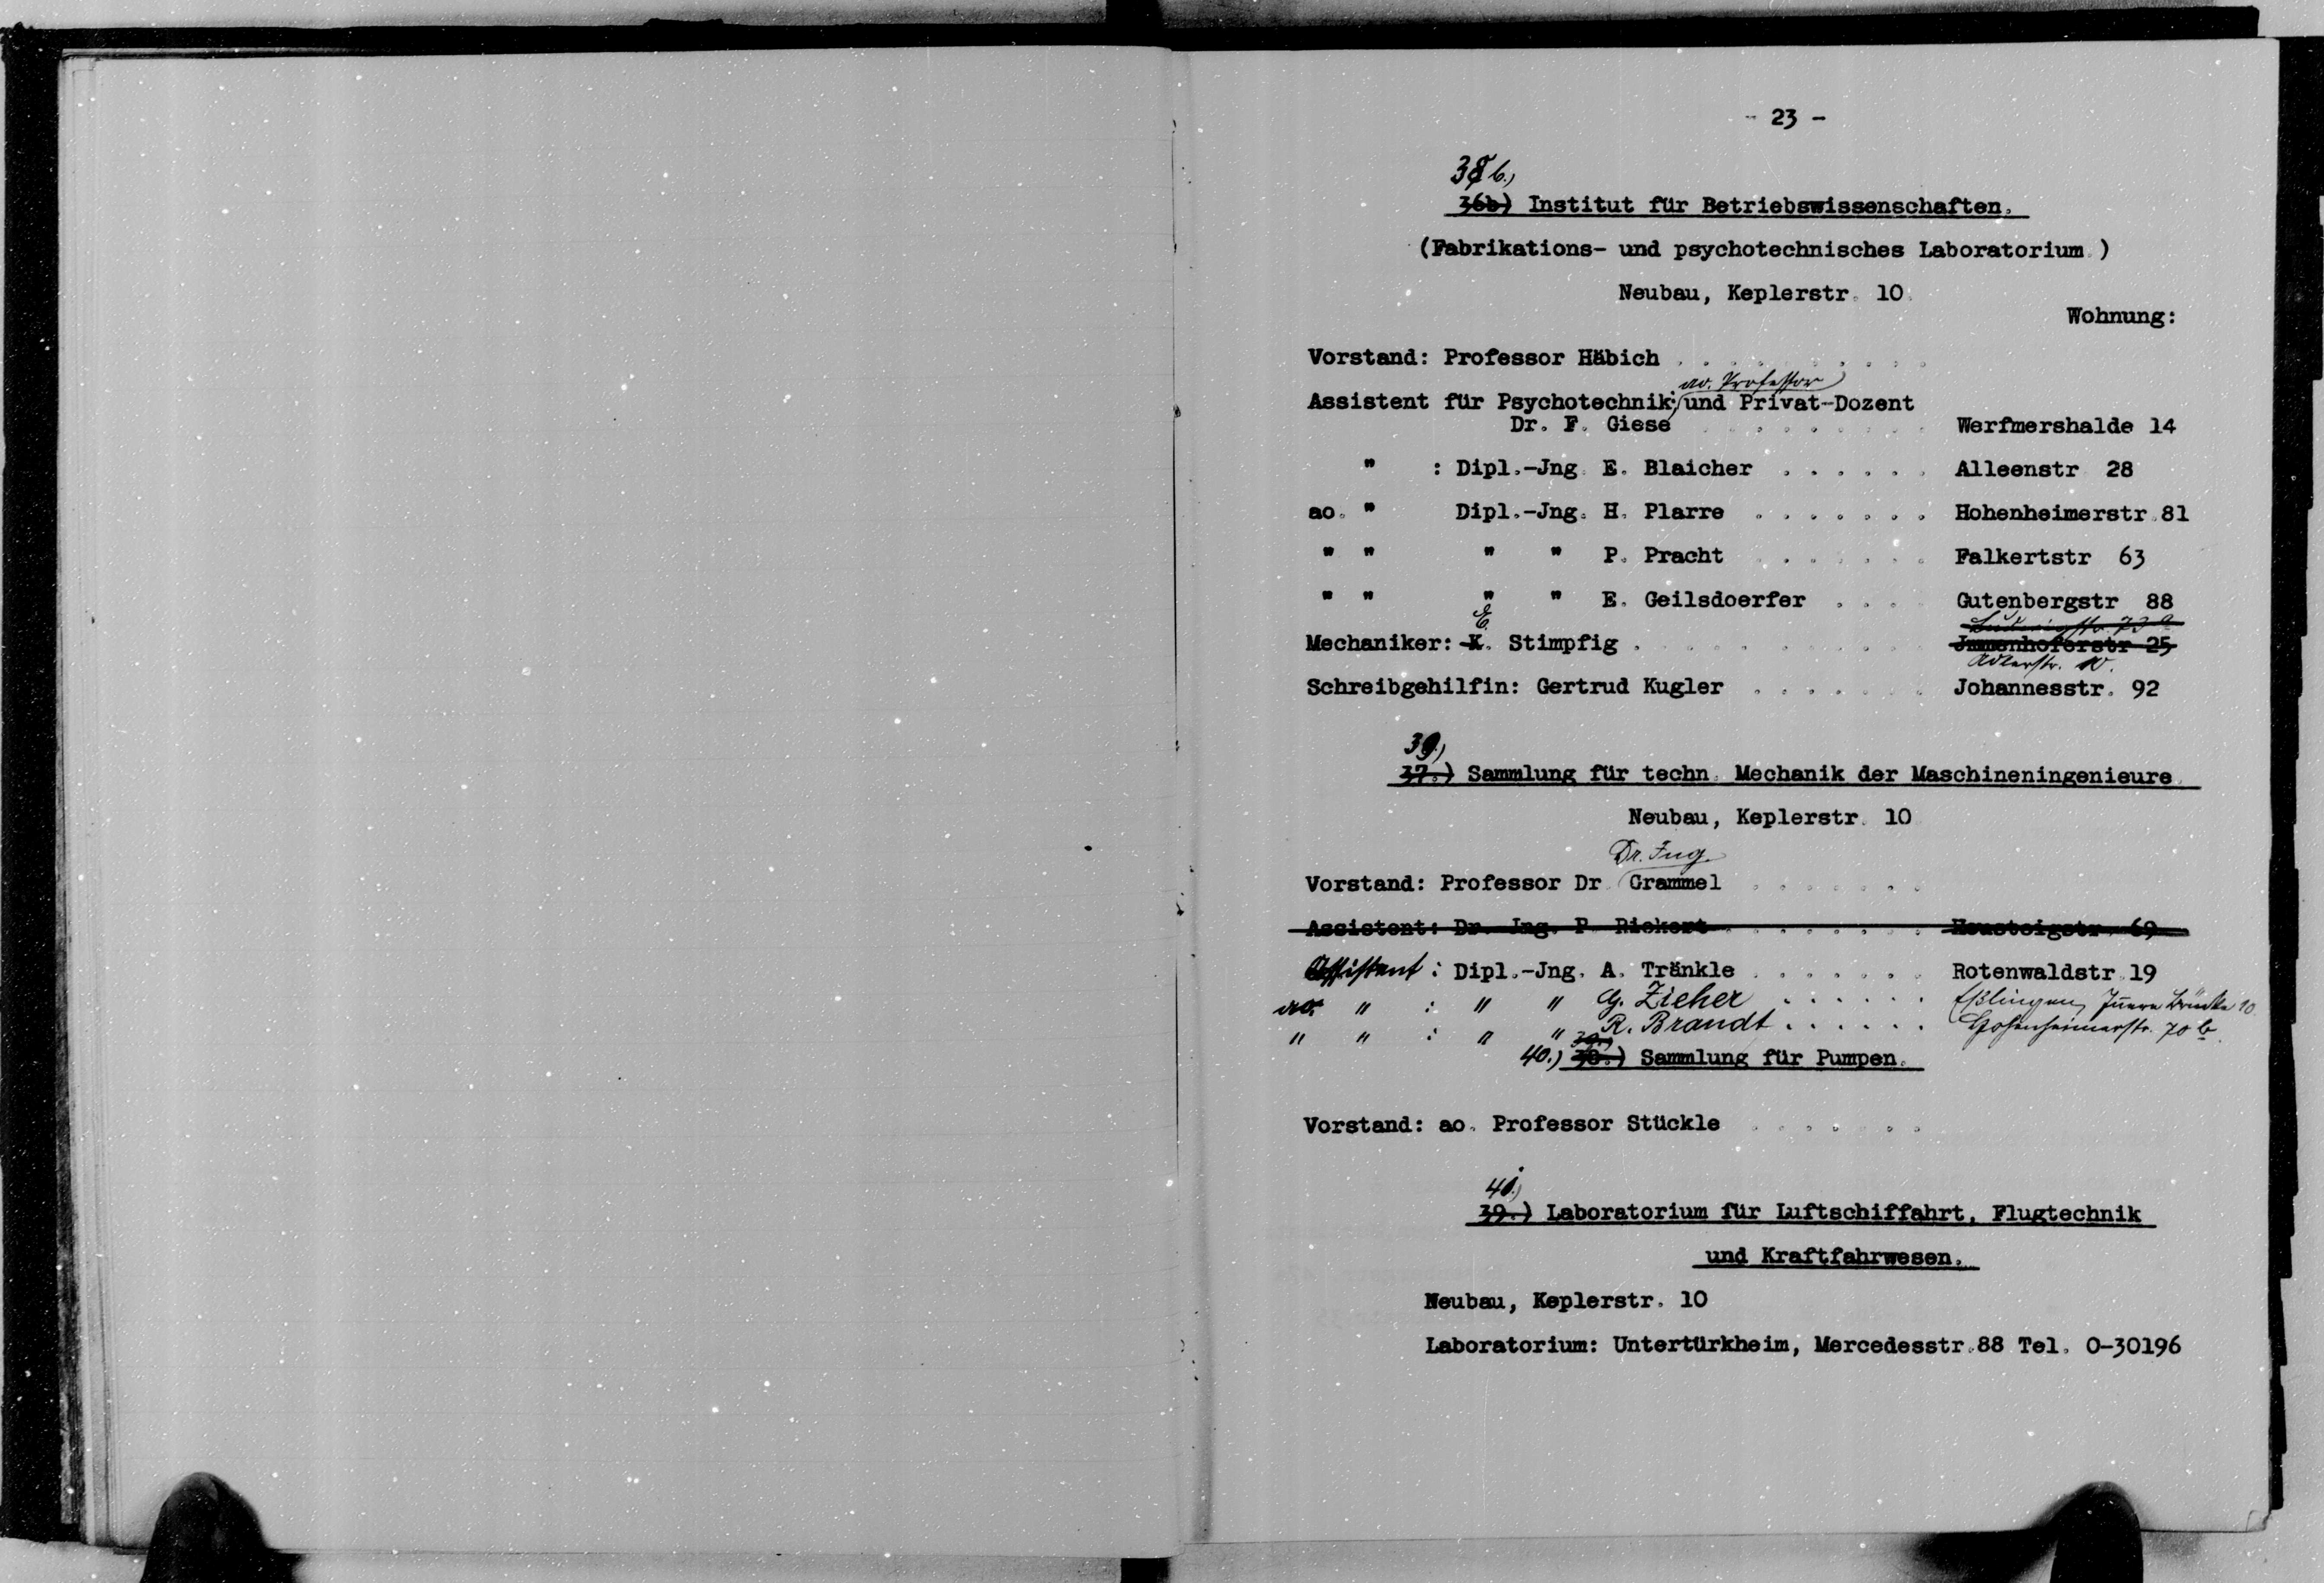 - 23 -
38 b.)
36b) Institut für Betriebswissenschaften.
(Fabrikations- und psychotechnisches Laboratorium.)
Neubau, Keplerstr. 10.
Wohnung:
Vorstand: Professor Häbich . . . . . . . . . .
ao. Professor
Assistent für Psychotechnik: und Privat-Dozent
Dr. F. Giese . . . . . . . . . Werfmershalde 14
" : Dipl.-Jng. E. Blaicher . . . . . . Alleenstr 28
ao. " Dipl.-Jng. H. Plarre . . . . . . . Hohenheimerstr.81
" " " " P. Pracht . . . . . . . Falkertstr 63
" " " " E. Geilsdoerfer . . . . Gutenbergstr 88
E. Ludwigstr. 73
Mechaniker: K. Stimpfig . . . . . . . . . . . Jmmenhoferstr 25
Adlerstr. 10.
Schreibgehilfin: Gertrud Kugler . . . . . . . Johannesstr. 92
39.)
37.) Sammlung für techn. Mechanik der Maschineningenieure.
Neubau, Keplerstr. 10
Dr. Ing.
Vorstand: Professor Dr. Grammel . . . . . . .
Assistent: Dr. Jng. P. Riekert . . . . . . . . Heusteigstr. 69
Assistent: Dipl.-Jng. A. Tränkle . . . . . . . Rotenwaldstr.19
ao. " : " " G. Zieher . . . . . . Eßlingen, Innere Brücke 10.
" " : " " R. Brandt . . . . . . Hohenheimerstr. 70 b.
39.)
40.) 38.) Sammlung für Pumpen.
Vorstand: ao. Professor Stückle . . . . . . .
41.)
39.) Laboratorium für Luftschiffahrt, Flugtechnik
und Kraftfahrwesen.
Neubau, Keplerstr. 10
Laboratorium: Untertürkheim, Mercedesstr.88 Tel. 0-30196